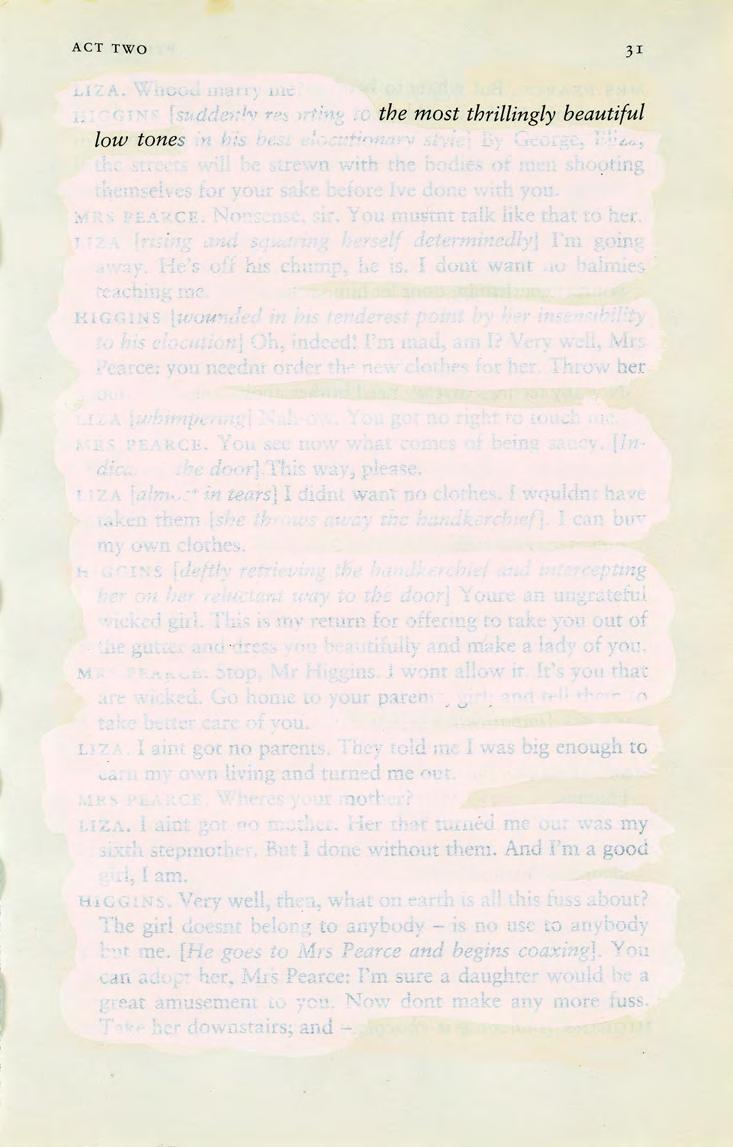 ACT TWO 31
LIZA. Whood marry me?
HIGGINS [suddenly resorting to the most thrillingly beautiful
low tones in his best elocutionary style] By George, Eliza,
the streets will be strewn with the bodies of men shooting
themselves for your sake before Ive done with you.
MRS PEARCE. Nonsense, sir. You mustnt talk like that to her.
LIZA [rising and squaring herself determinedly] I'm going
away. He's off his chump, he is. I dont want no balmies
teaching me.
HIGGINS [wounded in his tenderest point by her insensibility
to his elocution] Oh, indeed! I'm mad, am I? Very well, Mrs
Pearce: you neednt order the new clothes for her. Throw her
LIZA [whimpering] Nah-ow. You got no right to touch me.
MRS PEARCE. You see now what comes of being saucy. [In-
dica the door] This way, please.
LIZA [almost in tears] I didnt want no clothes. I wouldnt have
taken them [she throws away the handkerchief]. I can buy
my own clothes.
HIGGINS [deftly retrieving the handkerchief and intercepting
her on her reluctant way to the door] Youre an ungrateful
wicked girl. This is my return for offering to take you out of
the gutter and dress you beautifully and make a lady of you.
MRS PEARCE. Stop, Mr Higgins. I wont allow it. It's you that
are wicked. Go home to your parents, girl; and tell them to
take better care of you.
LIZA. I aint got no parents. They told me I was big enough to
earn my own living and turned me out.
MRS PEARCE. Wheres your mother?
LIZA. I aint got no mother. Her that turned me out was my
sixth stepmother. But I done without them. And I'm a good
girl, I am.
HIGGINS. Very well, then, what on earth is all this fuss about?
The girl doesnt belong to anybody – is no use to anybody
but me. [He goes to Mrs Pearce and begins coaxing]. You
can adopt her, Mrs Pearce: I'm sure a daughter would be a
great amusement to you. Now dont make any more fuss.
Take her downstairs; and –